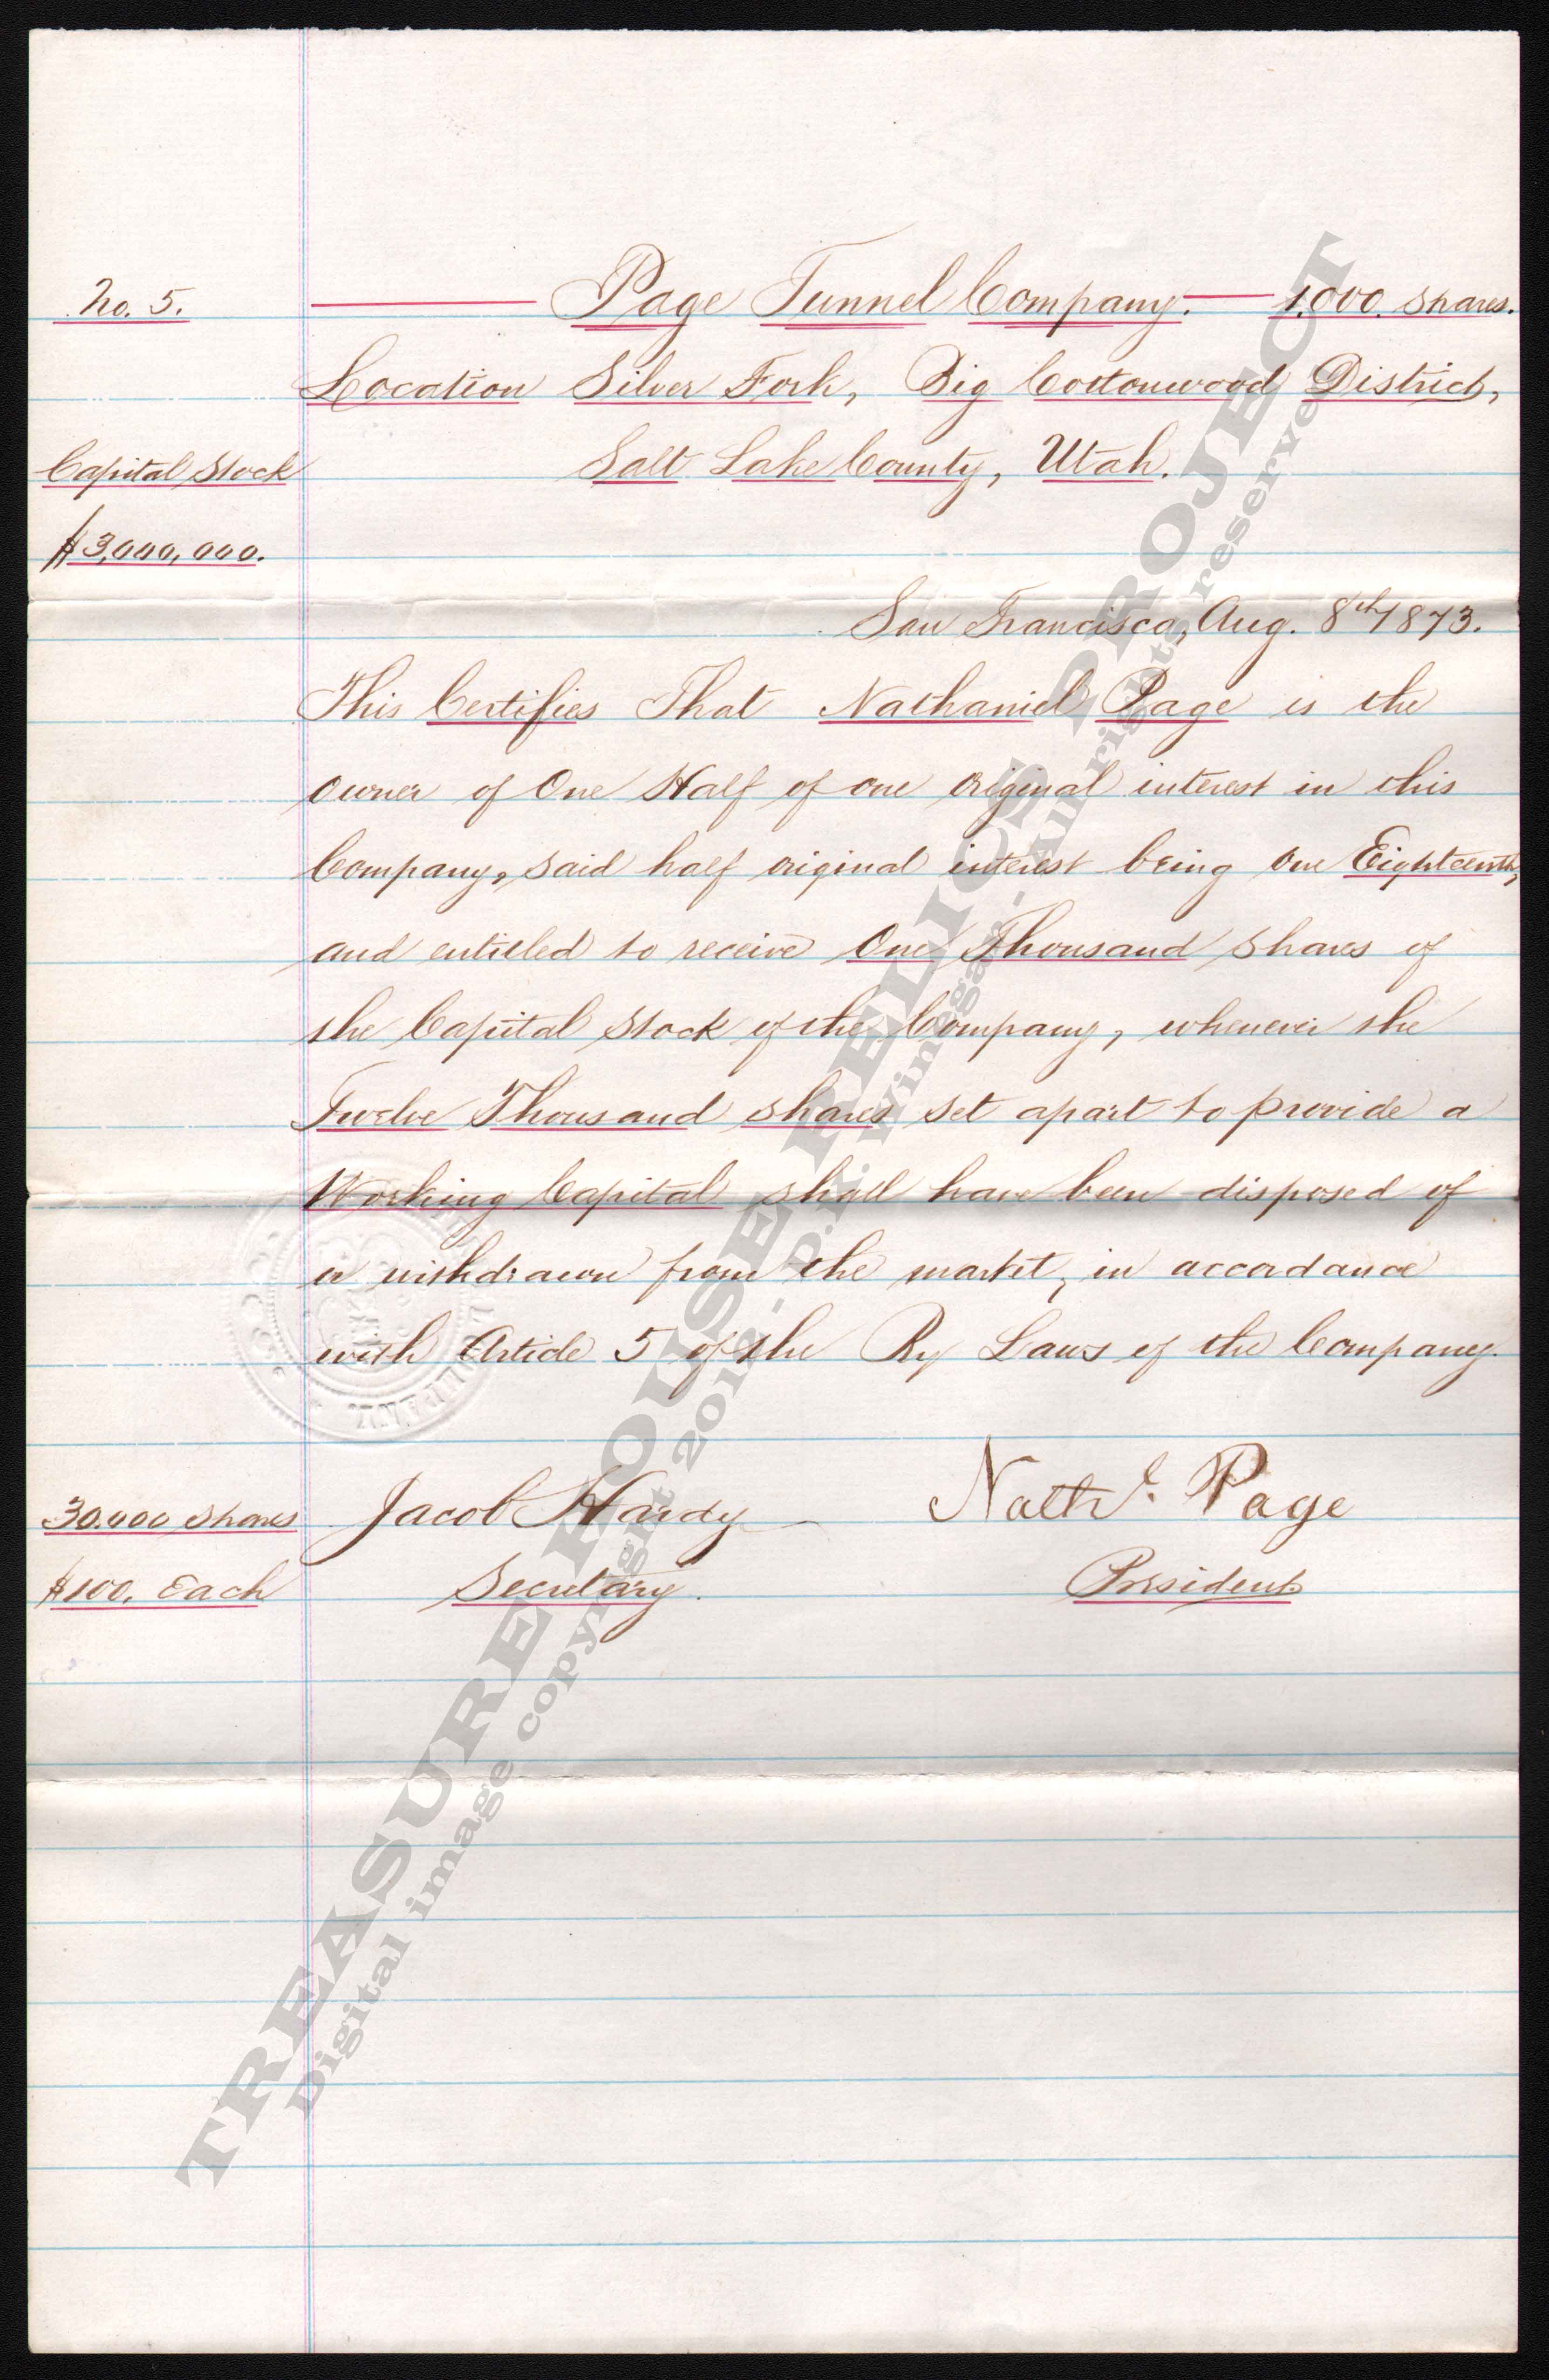 No. 5. Page Tunnel Company. 1,000. Shares.
Location Silver Fork, Big Cottonwood District,
Capital Stock Salt Lake County, Utah.
$3,000,000.
San Francisco, Aug. 8th 1873.
This Certifies That Nathaniel Page is the
owner of One Half of one original interest in this
Company, said half original interest being one Eighteenth,
and entitled to receive One Thousand Shares of
the Capital Stock of the Company, whenever the
Twelve Thousand shares set apart to provide a
Working Capital shall have been disposed of
or withdrawn from the market, in accordance
with Article 5 of the By Laws of the Company.
30.000 Shares Jacob Hardy Nathl. Page
$100. Each Secretary. President
TREASURE HOUSE RELICS PROJECT
Digital image copyright 2018 - D.K. Winegar - All rights reserved